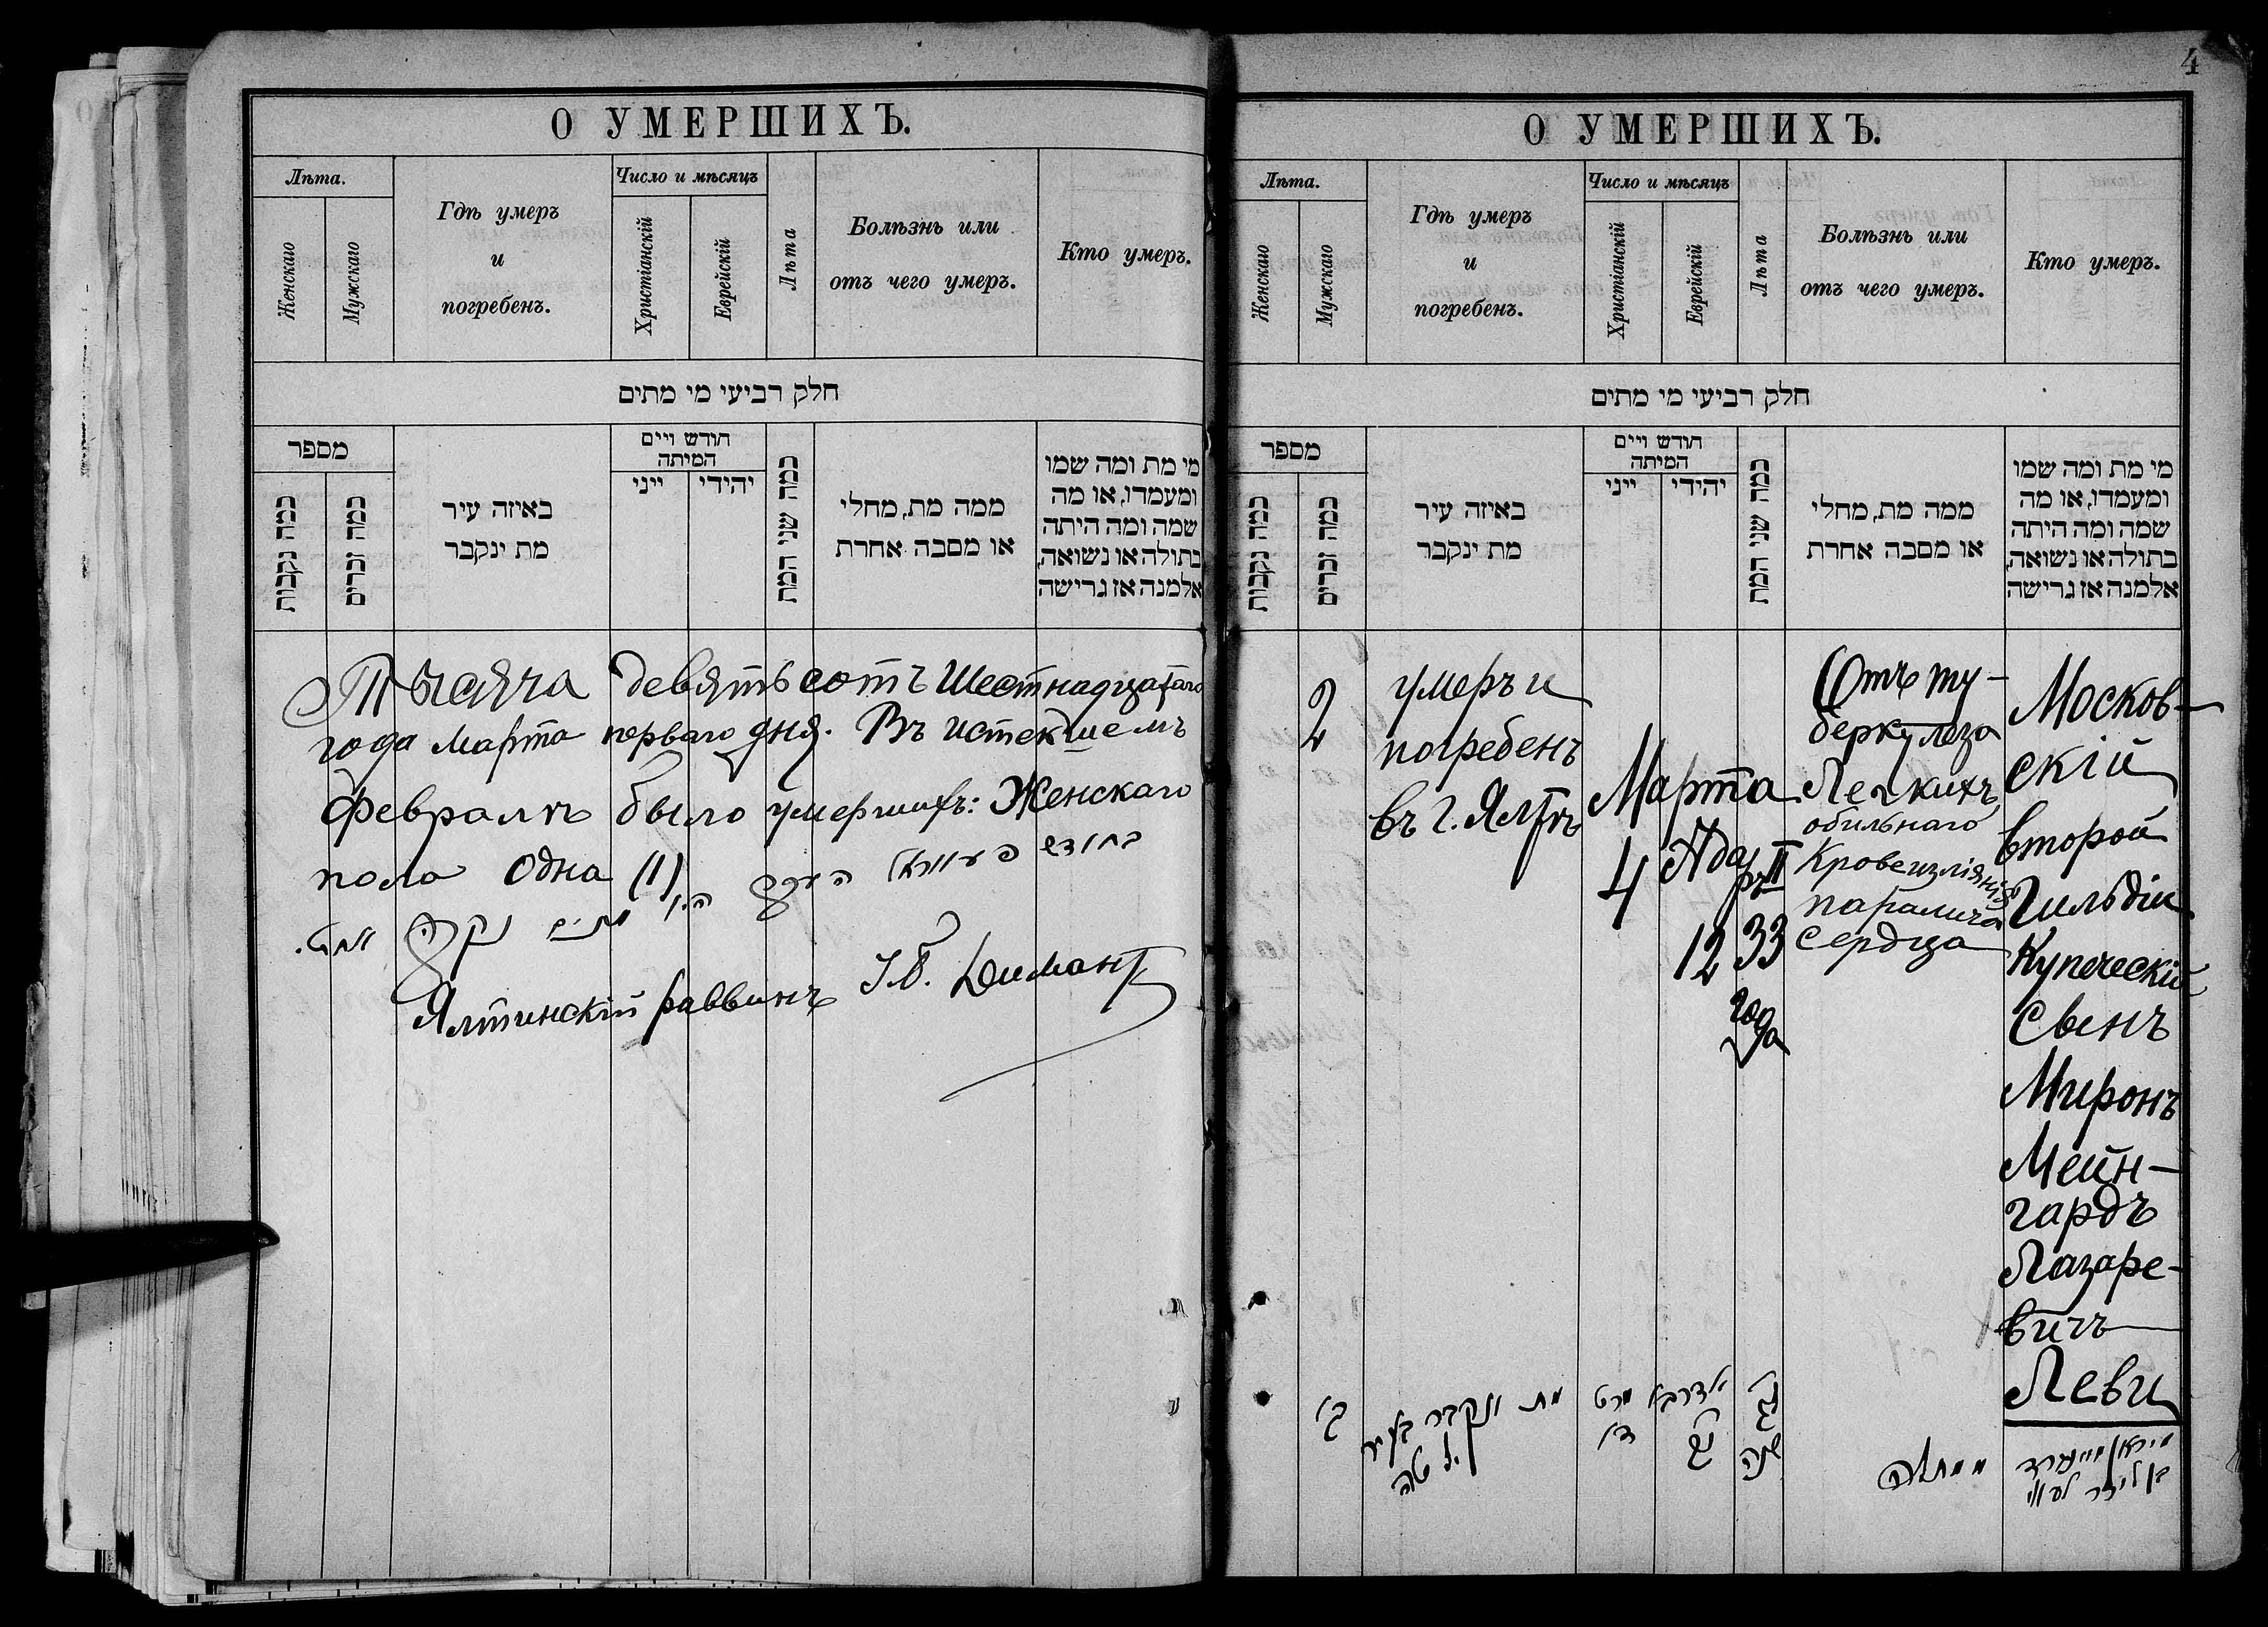 О УМЕРШИХЪ.
Лѣта.
Женскаго
Мужскаго
Гдѣ умеръ
и
погребенъ.
Число и мѣсяцъ
Христіанскій
Еврейскій
Лѣта
Болѣзнь или
отъ чего умеръ.
Кто умеръ.
חלק רביעי מי מתים
מספר
כמה נקבות
כמה זכרים
באיזה עיר
מת ינקבר
חודש ויים
המיתה
ייני
יהודי
כמה שני המת
ממה מת, מחלי
או מסבה אחרת
מי מת ומה שמו
ומעמדו, או מה
שמה ומה היתה
בתולה או נשואה,
אלמנה אז גרישה
Тысяча девятьсотъ шестнадцатаго
года Марта перваго дня. Въ истекшемъ
Февралѣ было умершихъ: Женскаго
пола одна (1)
Ялтинскій раввинъ
4
О УМЕРШИХЪ.
Лѣта.
Женскаго
Мужскаго
Гдѣ умеръ
и
погребенъ.
Число и мѣсяцъ
Христіанскій
Еврейскій
Лѣта
Болѣзнь или
отъ чего умеръ.
Кто умеръ.
חלק רביעי מי מתים
מספר
כמה נקבות
כמה זכרים
באיזה עיר
מת ינקבר
חודש ויים
המיתה
ייני
יהודי
כמה שני המת
ממה מת, מחלי
או מסבה אחרת
מי מת ומה שמו
ומעמדו, או מה
שמה ומה היתה
בתולה או נשואה,
אלמנה אז גרישה
2
умеръ и
погребенъ
въ г. Ялтѣ
Марта
4
Ада
ръ II
12
33
года
Отъ ту-
беркулеза
Легкихъ,
обильнаго
Кровеизліянія
паралича
Сердца
Москов-
скій
второй
Гильдіи
Купеческій
Сынъ
Миронъ
Мейн-
гардъ
Лазаре-
вичъ
Леви
מת ונקבר בעיר
שנה